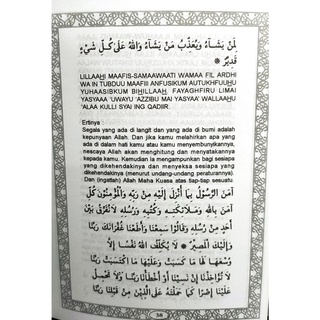 لِمَنْ يَشَآءُ وَيُعَذِّبُ مَنْ يَشَآءُ وَاللّٰهُ عَلٰى كُلِّ شَيْءٍ
قَدِيْرٌ
LILLAAHI MAAFIS-SAMAAWAATI WAMAA FIL ARDHI
WA IN TUBDUU MAAFII ANFUSIKUM AUTUKHFUUHU
YUHAASIBKUM BIHILLAAH. FAYAGHFIRU LIMAI
YASYAAA 'UWAYU 'AZZIBU MAI YASYAA' WALLAAHU
'ALAA KULLI SYAI ING QADIIR.
Ertinya :
Segala yang ada di langit dan yang ada di bumi adalah
kepunyaan Allah. Dan jika kamu melahirkan apa yang
ada di dalam hati kamu atau kamu menyembunyikannya,
nescaya Allah akan menghitung dan menyatakannya
kepada kamu. Kemudian Ia mengampunkan bagi sesiapa
yang dikehendakinya dan menyeksa sesiapa yang
dikehendakinya (menurut undang-undang peraturannya).
Dan (ingatlah) Allah Maha Kuasa atas tiap-tiap sesuatu.
آمَنَ الرَّسُوْلُ بِمَا أُنْزِلَ إِلَيْهِ مِنْ رَبِّهِ وَالْمُؤْمِنُوْنَ كُلٌّ
آمَنَ بِاللّٰهِ وَمَلَائِكَتِهِ وَكُتُبِهِ وَرُسُلِهِ لَا نُفَرِّقُ بَيْنَ
أَحَدٍ مِنْ رُسُلِهِ وَقَالُوْا سَمِعْنَا وَأَطَعْنَا غُفْرَانَكَ رَبَّنَا
وَإِلَيْكَ الْمَصِيْرُ * لَا يُكَلِّفُ اللّٰهُ نَفْسًا إِلَّا
وُسْعَهَا لَهَا مَا كَسَبَتْ وَعَلَيْهَا مَا اكْتَسَبَتْ رَبَّنَا
لَا تُؤَاخِذْنَا إِنْ نَسِيْنَا أَوْ أَخْطَأْنَا رَبَّنَا وَلَا تَحْمِلْ
عَلَيْنَا إِصْرًا كَمَا حَمَلْتَهُ عَلَى الَّذِيْنَ مِنْ قَبْلِنَا رَبَّنَا
38